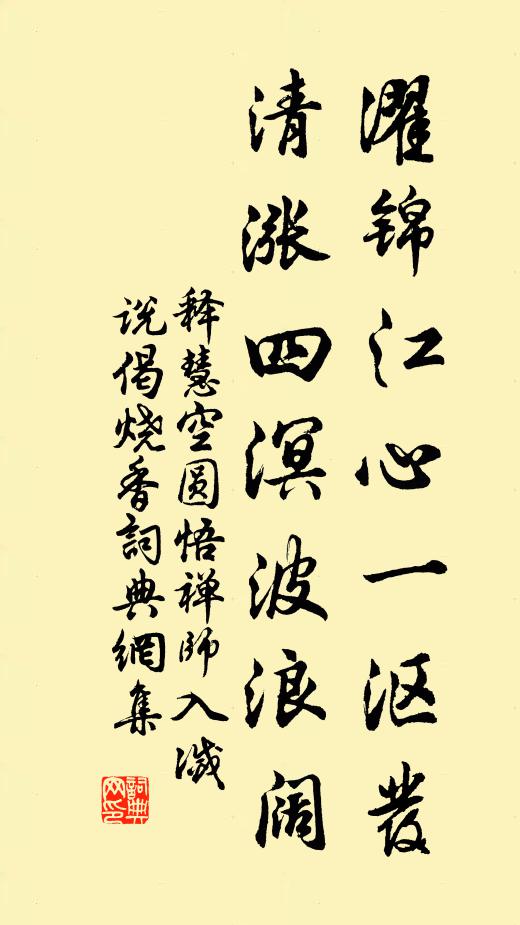 濯锦江心一沤发
清涨四溟波浪阔
释慧空圆悟禅师入灭
说偈烧香詞典網集
詞典
网印